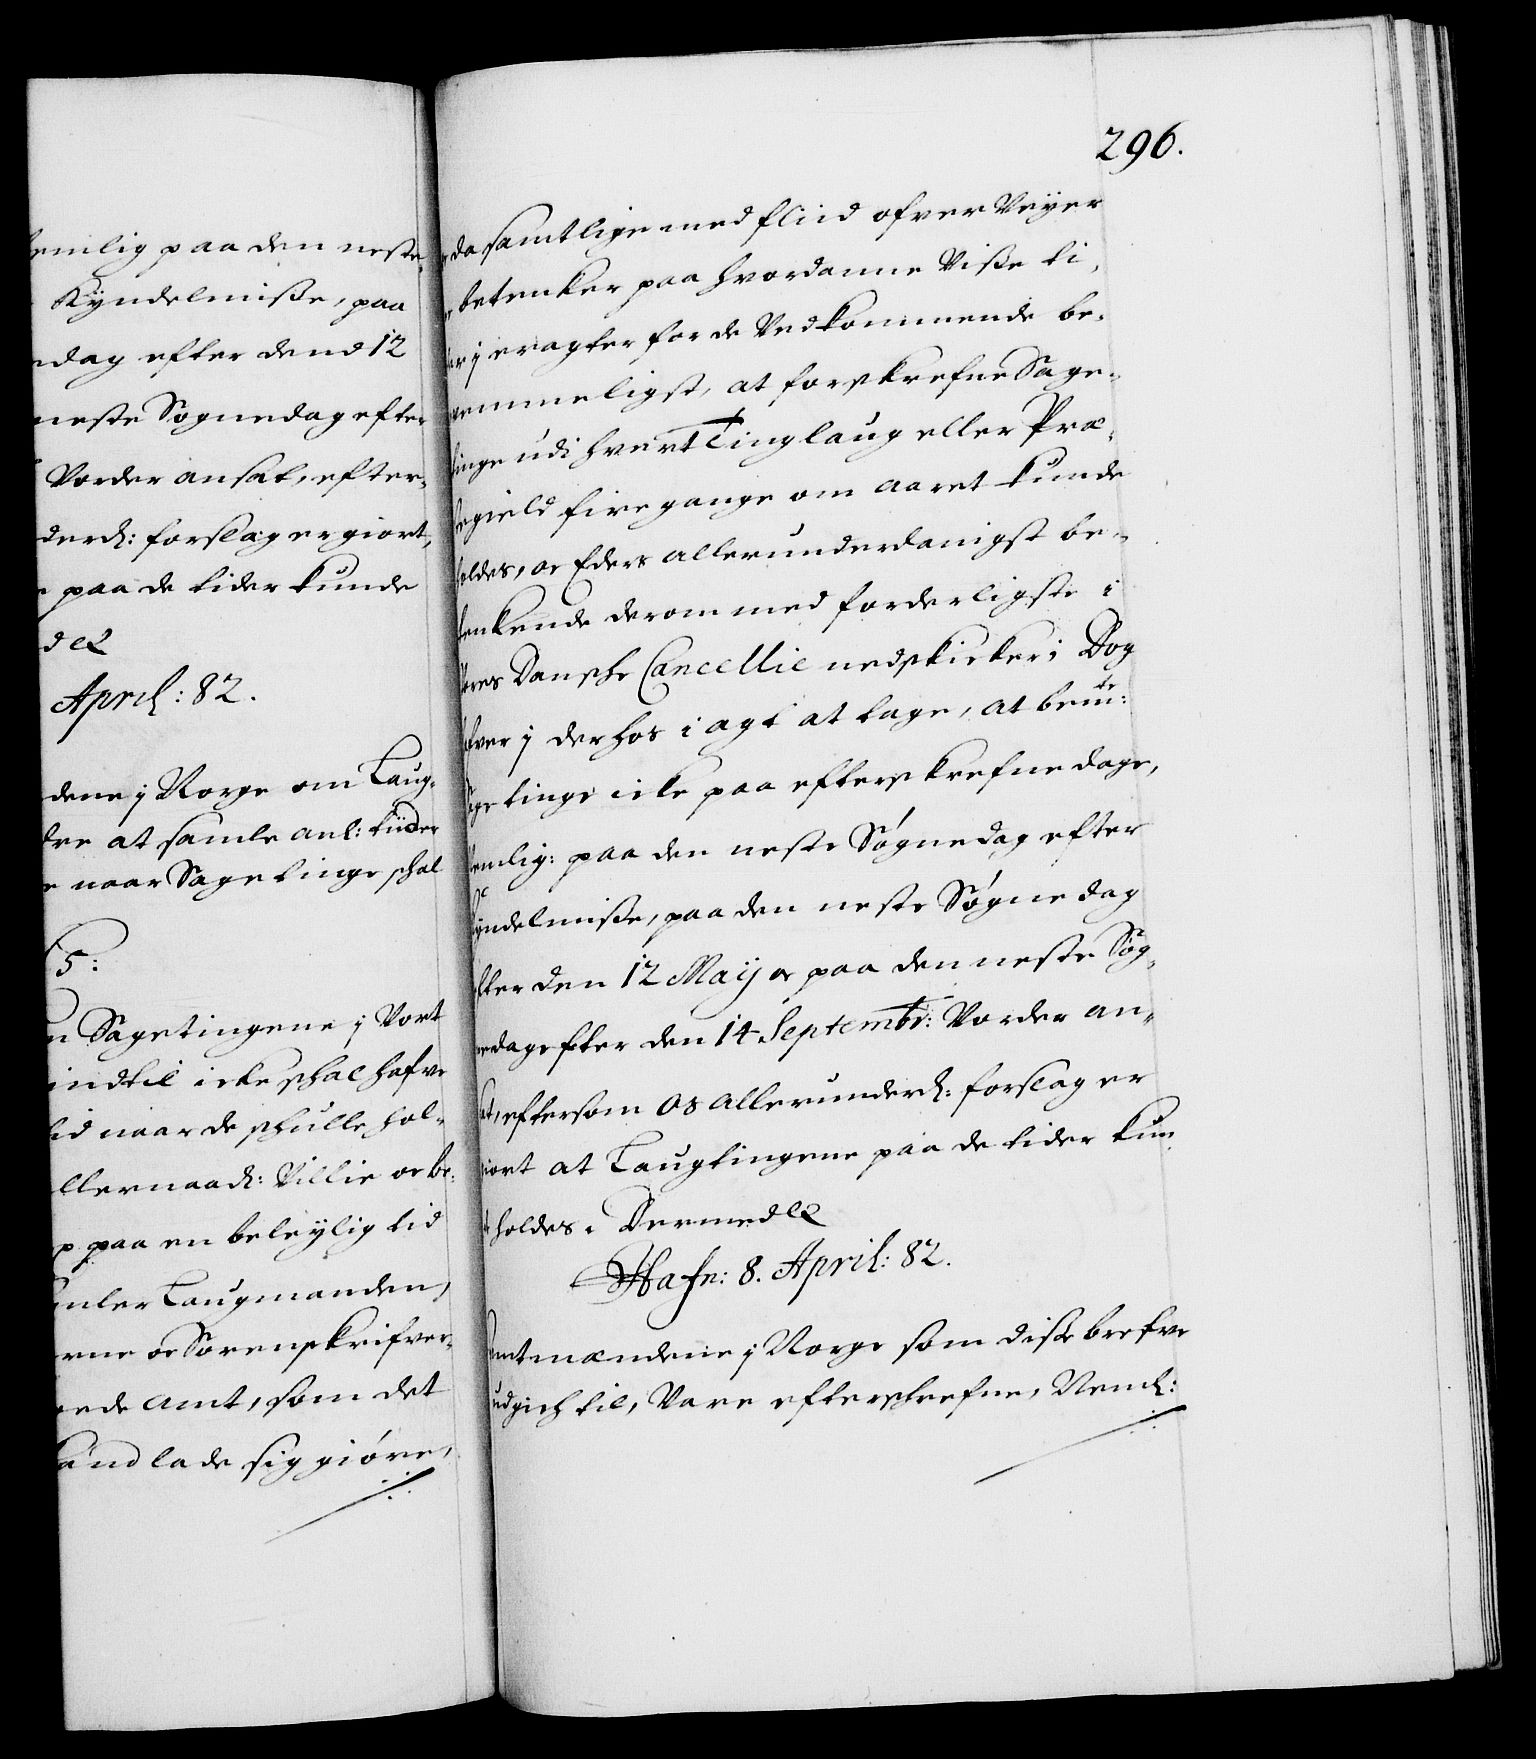 emlig paa den neste
Kyndelmisse, paa
dag efter dend 12
neste Søgnedag efter
Vorder ansat, efter-
derd: forslag er giort,
paa de tider kunde
April: 82.
dene j Norge om Laug-
at samle anl: tiider
naar Sagetinge schal
5:
Sagetingene j Vort
indtil icke schal hafve
tid naar de schulle hol-
llernaad: Villie oc be-
paa en beleylig tid
Laugmanden,
rne oc Sorenskrifver-
ede amt, som det
kand lade sig giøre,
296.
da samtlige med fliid ofverveyer
betenker paa hvordanne visse ti-
j eragter for de Vedkommende be-
qvemmeligst, at forskrefne Sage-
tinge udi hvert Tinglaug eller Præ-
stegield fire gange om aaret kunde
holdes, oc Eders allerunderdanigst be-
tenkende derom med forderligste i
Vores Dansche Cancellie nedskicker; Dog
hafver j derhos i agt at tage, at bemte:
Sagetinge icke paa efterskrefne dage,
Nemlig: paa den neste Søgnedag efter
Kyndelmisse, paa den neste Søgnedag
efter den 12 Maij oc paa den neste Søg-
nedag efter den 14 Septembr: Vorder an-
sat, eftersom os allerunderd: forslag er
giort at Laugtingene paa de tider kun-
de holdes. Dermed etc
Hafn: 8. April: 82.
Amtmændene j Norge som disse brefve
udgich til, Vare efterschrefne, Neml: